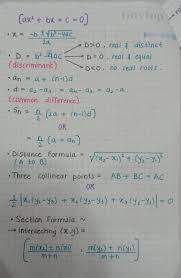 [ax² + bx + c = 0]
• x = -b ± √b² - 4ac
2a
D > 0, real & distinct
• D = b² - 4ac
D = 0, real & equal
(discriminant)
D < 0, no real roots.
• an = a + (n-1)d
• d = a₂ - a₁ = a₃ - a₂
(common difference)
• Sn = n/2 [2a + (n-1)d]
OR
= n/2 [a + an]
• Distance formula = √(x₂-x₁)² + (y₂-y₁)²
(A to B)
• Three collinear points = AB + BC = AC
OR
1/2 |x₁(y₂-y₃) + x₂(y₃-y₁) + x₃(y₁-y₂)| = 0
• Section Formula ~
→ Intersecting (x,y) =
[m(x₂) + n(x₁) / m+n , m(y₂) + n(y₁) / m+n]